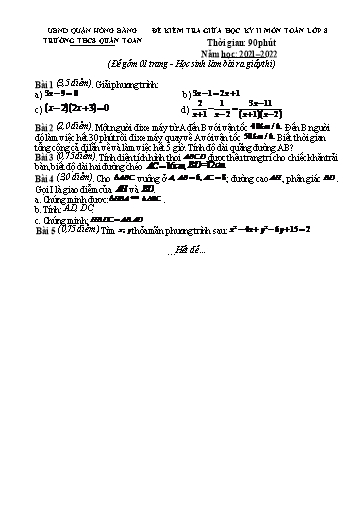 UBND QUẬN HỒNG BÀNG ĐỀ KIỂM TRA GIỮA HỌC KỲ II MÔN TOÁN LỚP 8
TRƯỜNG THCS QUÁN TOAN Thời gian: 90 phút
Năm học: 2021–2022
(Đề gồm 01 trang - Học sinh làm bài ra giấy thi)
Bài 1 (3,5 điểm). Giải phương trình:
a) 3x−9=0 b) 3x−1=2x+1
c) (x−2)(2x+3)=0 d) 2/(x+1) − 1/(x−2) = (3x−11)/((x+1)(x−2))
Bài 2 (2,0 điểm). Một người đi xe máy từ A đến B với vận tốc 40km/h. Đến B người
đó làm việc hết 30 phút rồi đi xe máy quay về A với vận tốc 50km/h. Biết thời gian
tổng cộng cả đi lẫn về và làm việc hết 5 giờ. Tính độ dài quãng đường AB?
Bài 3 (0,75 điểm). Tính diện tích hình thoi ABCD được thêu trang trí cho chiếc khăn trải
bàn, biết độ dài hai đường chéo AC=16cm, BD=12cm.
Bài 4 (3,0 điểm). Cho ΔABC vuông ở A, AB=6, AC=8; đường cao AH, phân giác BD.
Gọi I là giao điểm của AH và BD.
a. Chứng minh được: ΔHBA ∽ ΔABC.
b. Tính: AD, DC
c. Chứng minh:
Bài 5 (0,75 điểm) Tìm x; y thỏa mãn phương trình sau: x²−4x+y²−6y+15=2
...Hết đề...